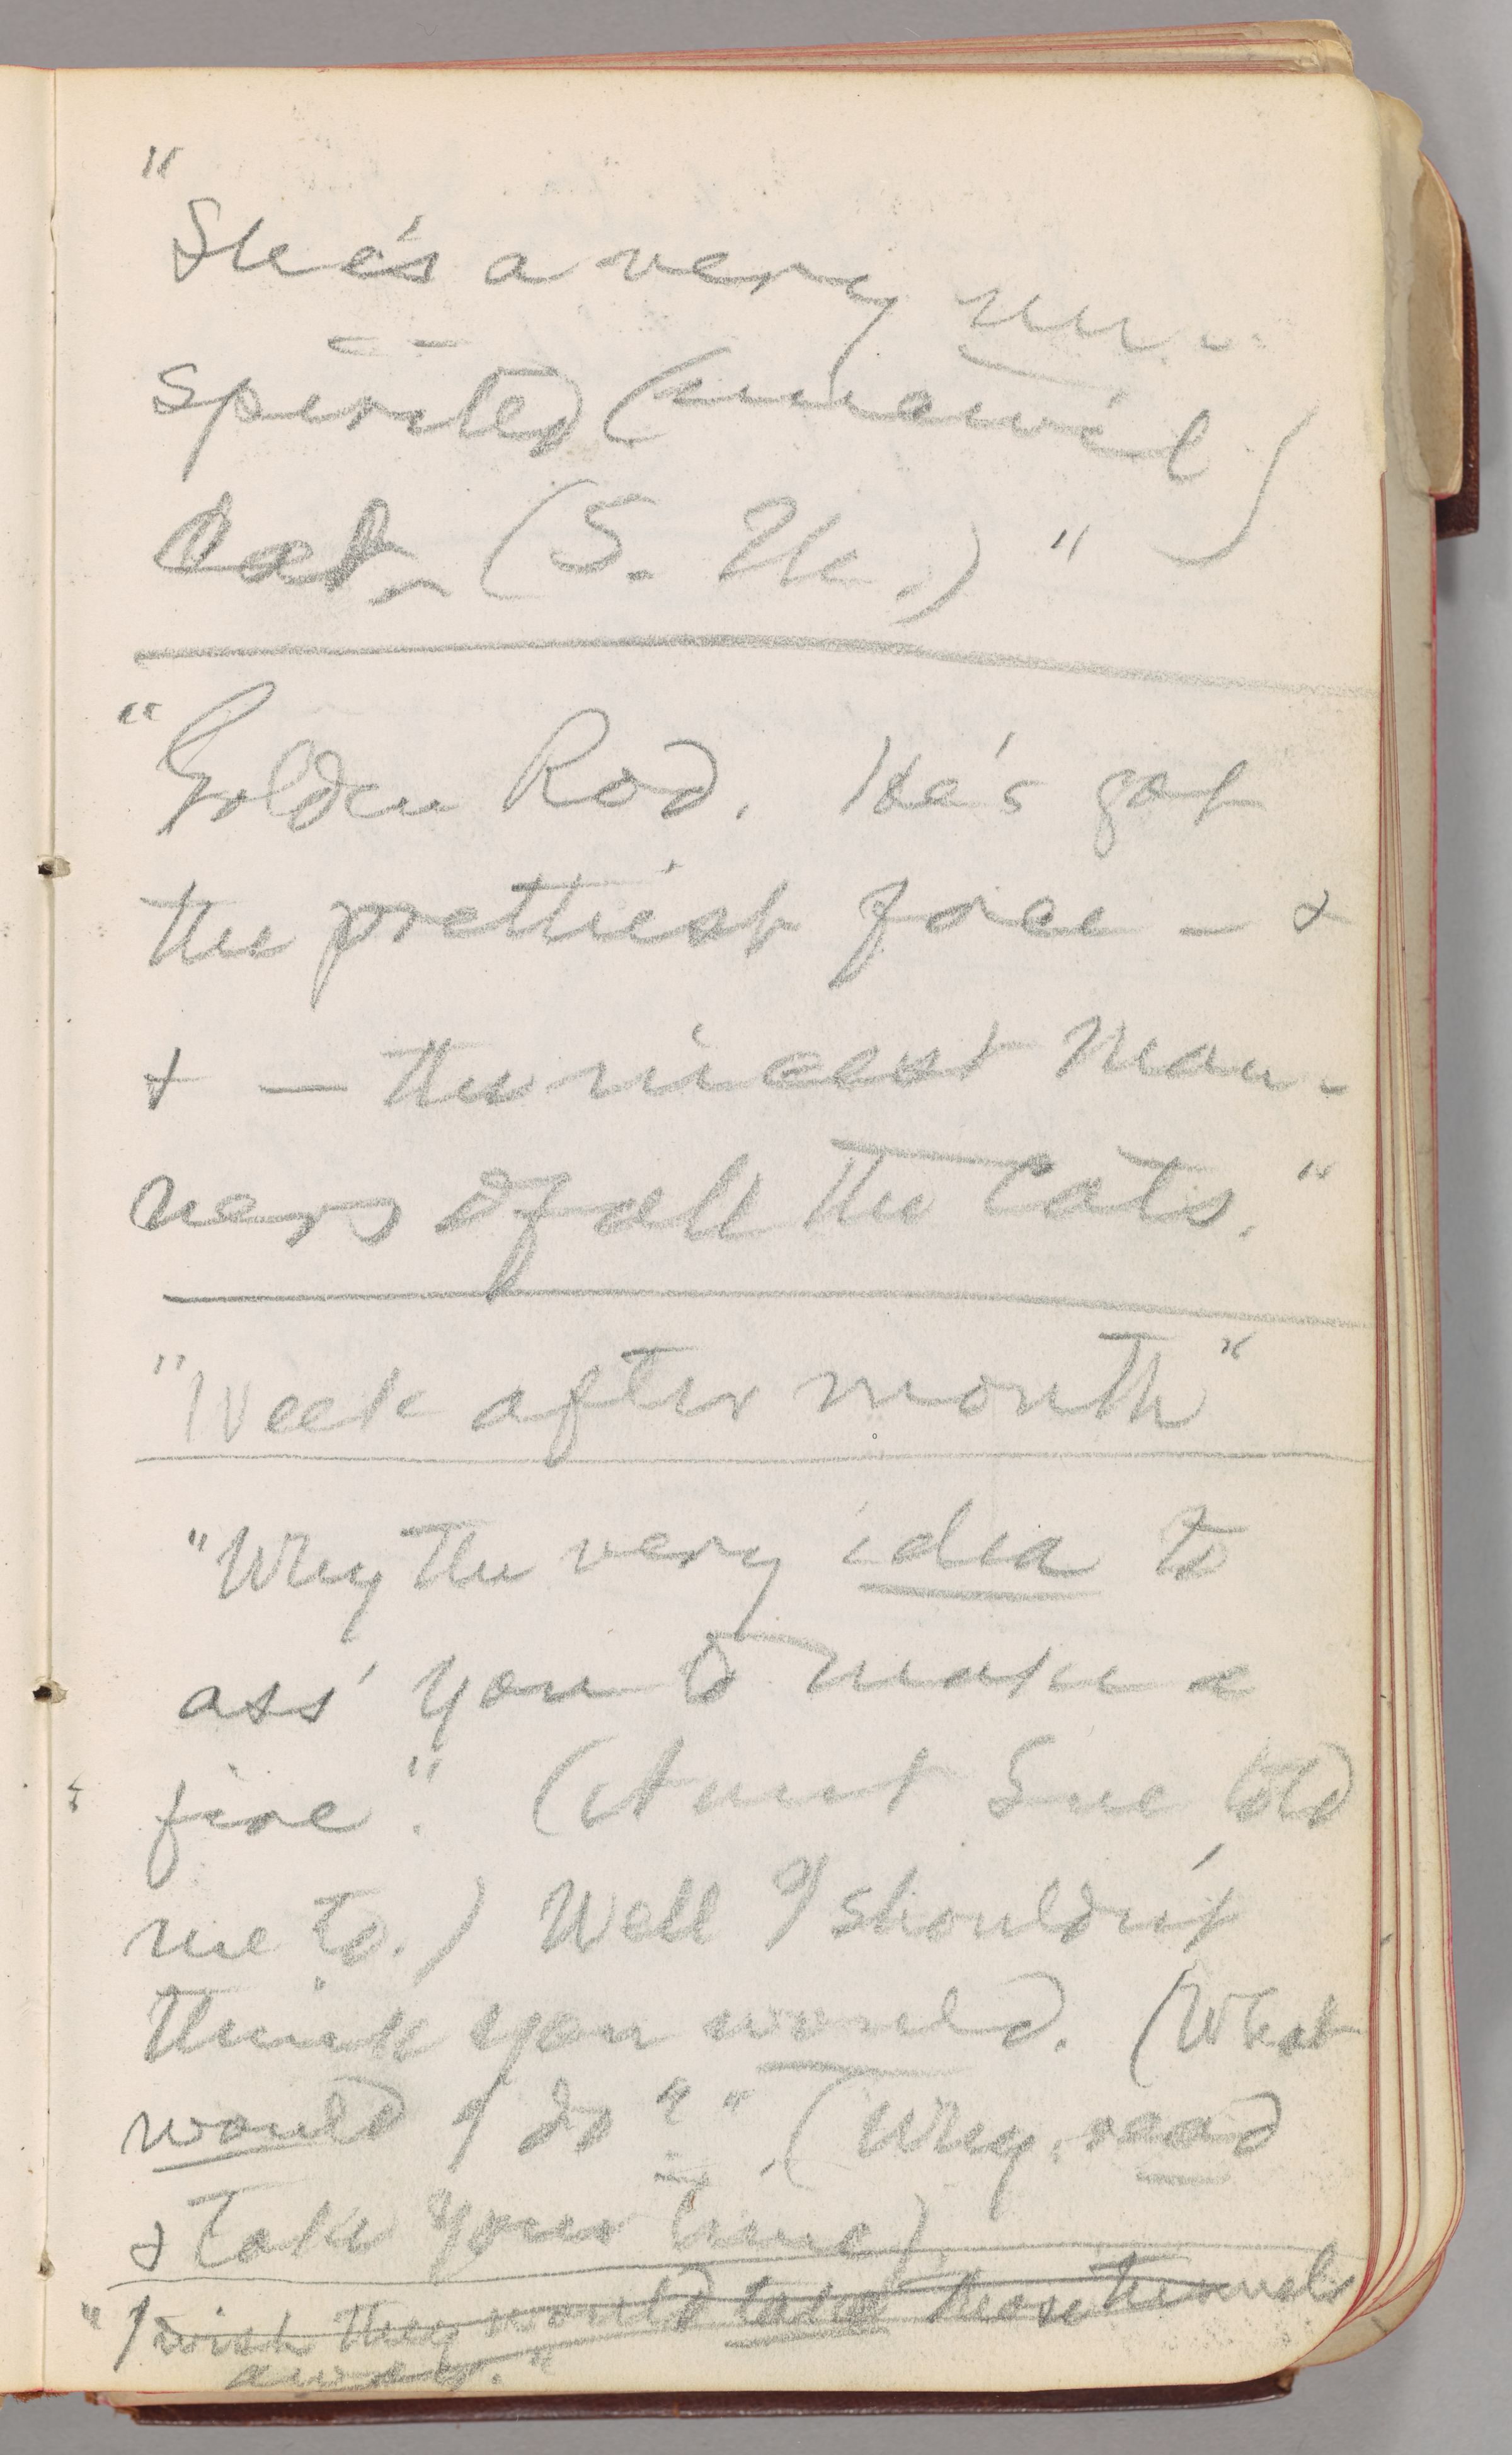 "
She's a very un-
spirited (unewil)
Cat. (S. W.)"
"Golden Rod. He's got
the prettiest face — &
& — the nicest man-
ners of all the Cats."
"Week after month"
"Why the very idea to
ass' you to make a
fire." (Aunt Sue told
me to.) Well I shouldn't
think you would. (What
would I do?" (Why, read
& take your time)
"I wish they would take those tunnels
away."